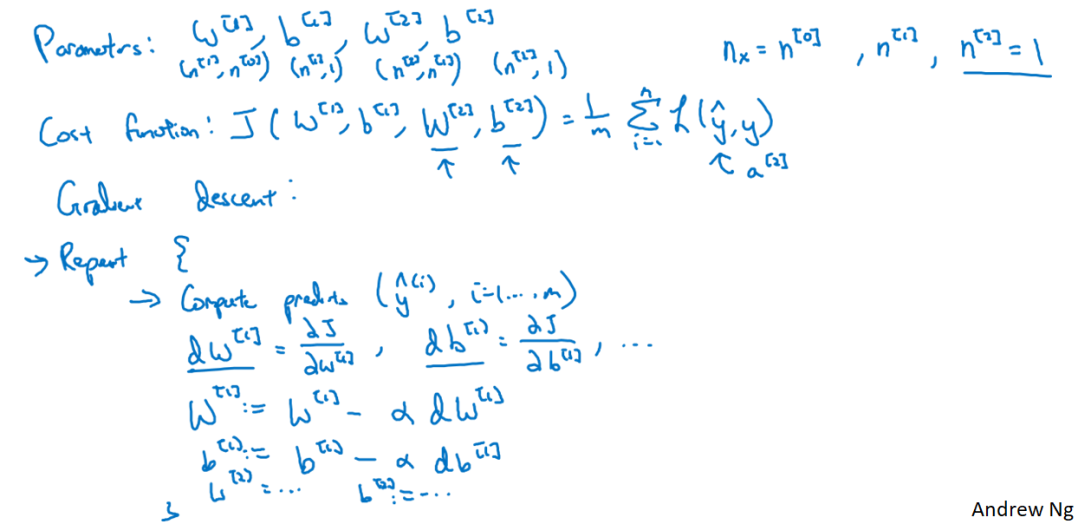 Parameters: W^[1], b^[1], W^[2], b^[2] n_x = n^[0], n^[1], n^[2] = 1
(n^[1], n^[0]) (n^[1], 1) (n^[2], n^[1]) (n^[2], 1)
Cost function: J(W^[1], b^[1], W^[2], b^[2]) = 1/m Σ_{i=1}^n L(ŷ, y)
↑ ↑ ↑ a^[2]
Gradient descent:
→ Repeat {
→ Compute predicts (ŷ^(i), i=1..., m)
dW^[1] = ∂J/∂W^[1], db^[1] = ∂J/∂b^[1], ...
W^[1] := W^[1] - α dW^[1]
b^[1] := b^[1] - α db^[1]
W^[2] := ... b^[2] := ...
}
Andrew Ng